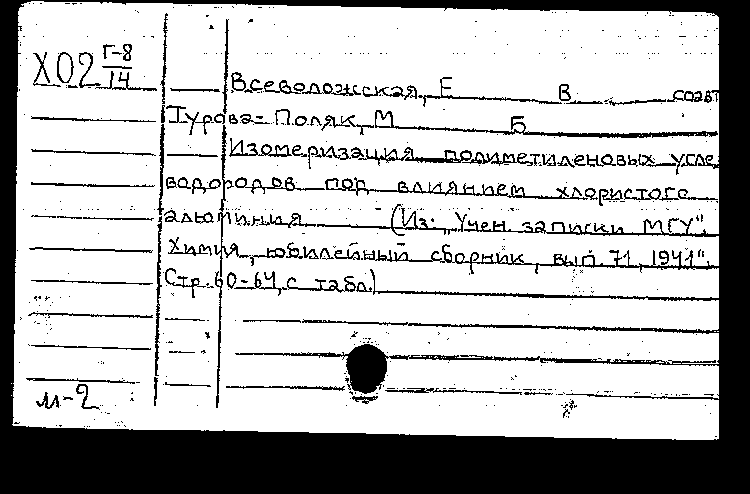 Х02 Г-8
14
Всеволожская, Е В соавт
Турова-Поляк, М Б
Изомеризация полиметиленовых угле
водородов под влиянием хлористого
алюминия (Из: „Учен. записки МГУ".
Химия, юбилейный сборник, вып. 71, 1941".
Стр. 60-64, с табл.)
м-2